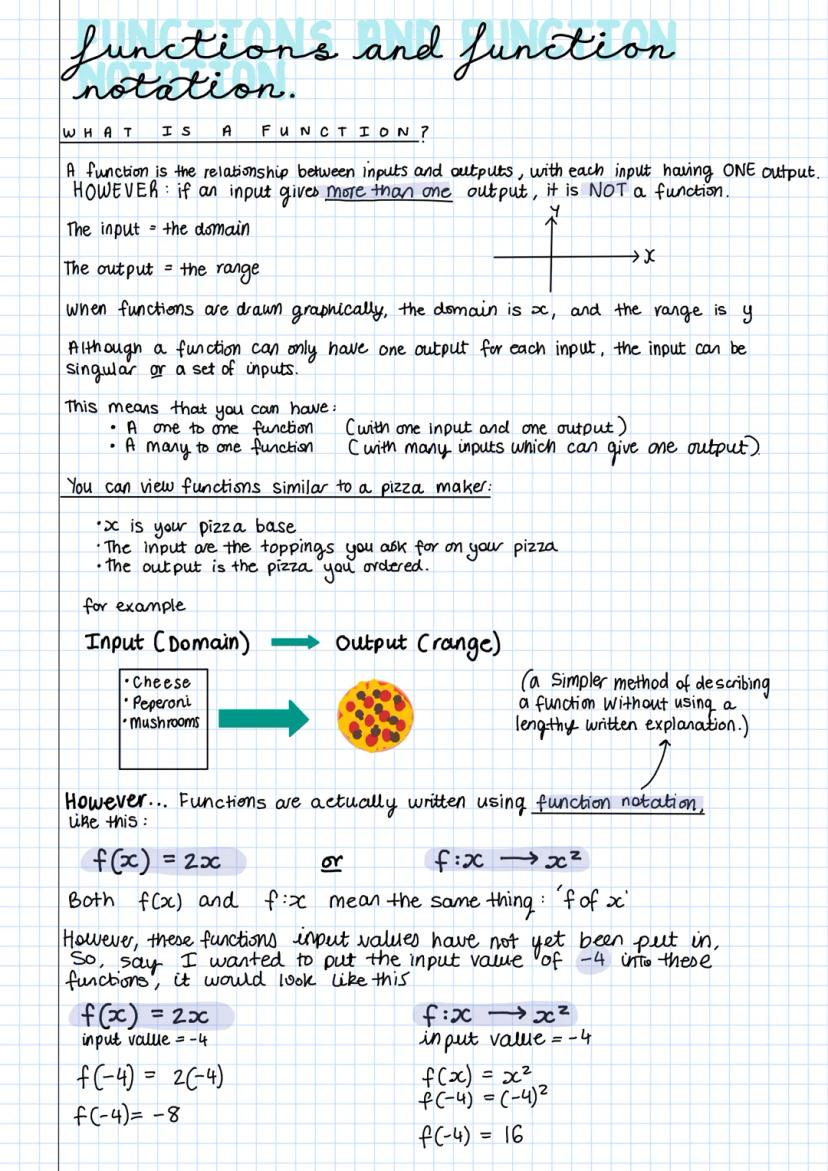 FUNCTIONS AND FUNCTION
NOTATION.
functions and function
notation.
WHAT IS A FUNCTION?
A function is the relationship between inputs and outputs, with each input having ONE output.
HOWEVER: if an input gives more than one output, it is NOT a function.
The input = the domain
The output = the range
y
x
When functions are drawn graphically, the domain is x, and the range is y
Although a function can only have one output for each input, the input can be
singular or a set of inputs.
This means that you can have:
• A one to one function (with one input and one output)
• A many to one function (with many inputs which can give one output)
You can view functions similar to a pizza maker:
• x is your pizza base
• The input are the toppings you ask for on your pizza
• The output is the pizza you ordered.
for example
Input (Domain) → Output (range)
• Cheese
• Peperoni
• Mushrooms
(a Simpler method of describing
a function without using a
lengthy written explanation.)
However... Functions are actually written using function notation,
like this:
f(x) = 2x or f:x → x²
Both f(x) and f:x mean the same thing: 'f of x'
However, these functions input values have not yet been put in,
So, say I wanted to put the input value of -4 into these
functions, it would look like this
f(x) = 2x
input value = -4
f(-4) = 2(-4)
f(-4) = -8
f:x → x²
input value = -4
f(x) = x²
f(-4) = (-4)²
f(-4) = 16